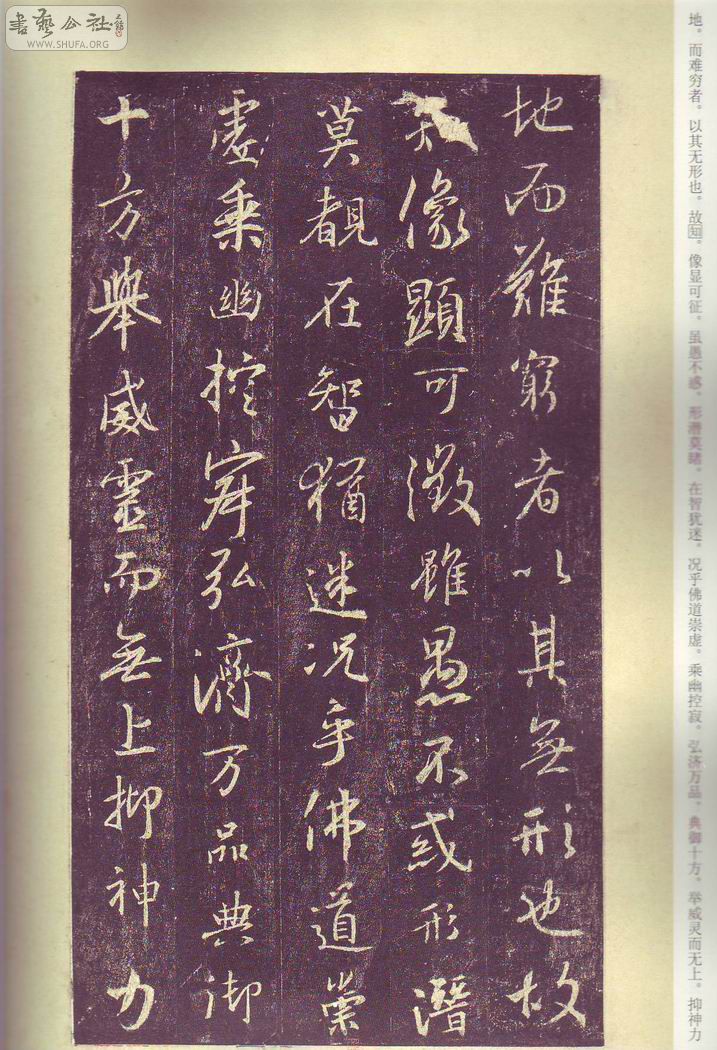 書藝公社
WWW.SHUFA.ORG
地。而难穷者。以其无形也。故知。像显可征。虽愚不惑。形潜莫睹。在智犹迷。况乎佛道崇虚。乘幽控寂。弘济万品。典御十方。举威灵而无上。抑神力
地而難窮者以其無形也故
像顯可徵雖愚不惑形潛
莫覩在智猶迷况乎佛道崇
虛乘幽控寂弘濟万品典御
十方舉威靈而無上抑神力